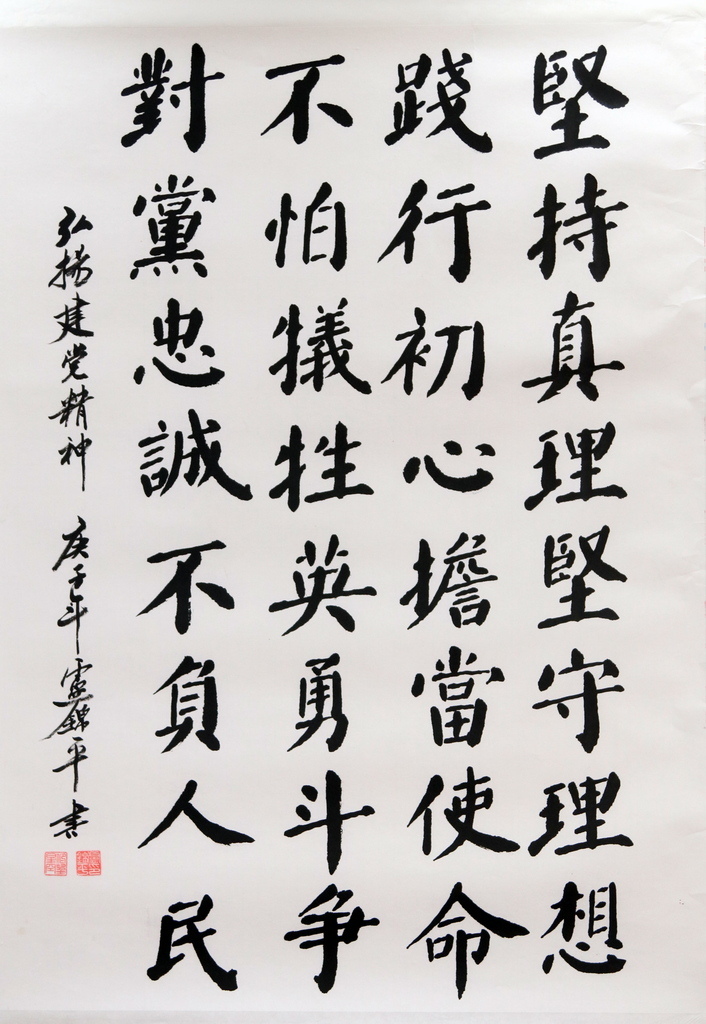 堅持真理堅守理想
踐行初心擔當使命
不怕犠牲英勇斗争
對黨忠誠不負人民
弘揚建党精神 庚子年 錦平書